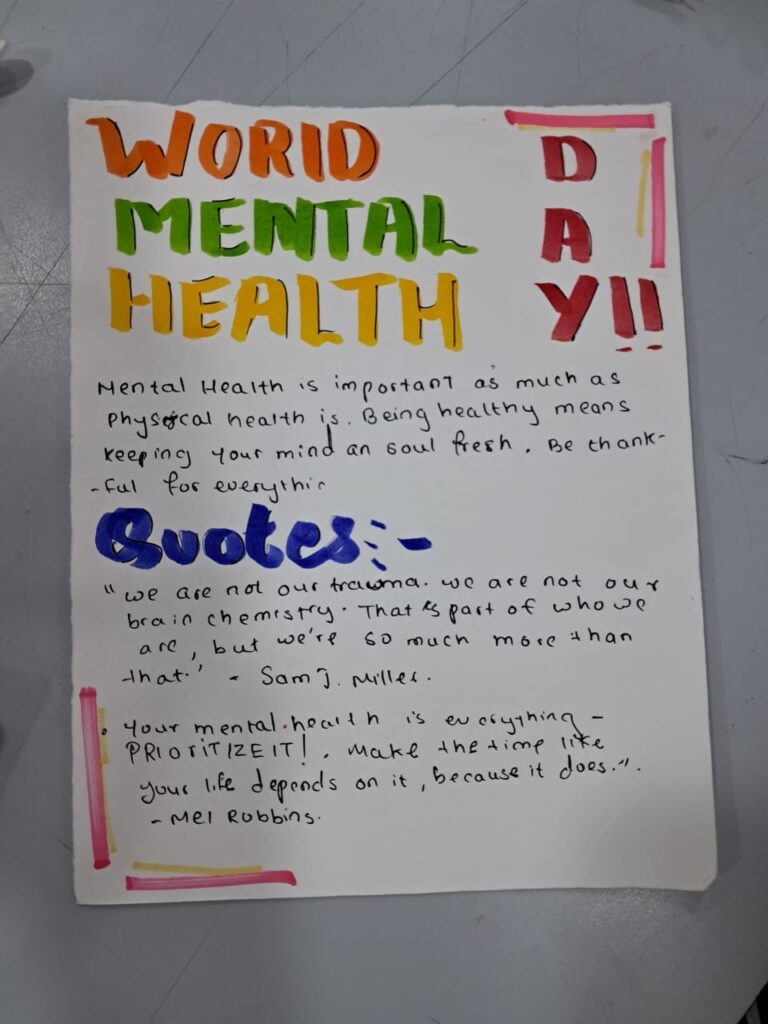 WORlD
MENTAL
HEALTH
DAY!!
Mental Health is important as much as
Physical health is. Being healthy means
keeping your mind an soul fresh. Be thank-
-ful for everythin
Quotes:-
"we are not our trauma. we are not our
brain chemistry. That is part of who we
are, but we're so much more than
that." - Sam J. Miller.
• Your mental health is everything -
PRIORITIZE IT!. Make the time like
your life depends on it, because it does.".
- Mel Robbins.